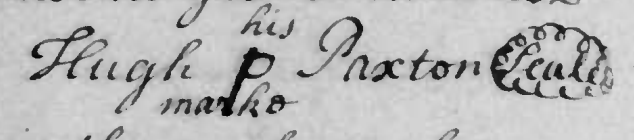 his
Hugh P Paxton Seale
marke